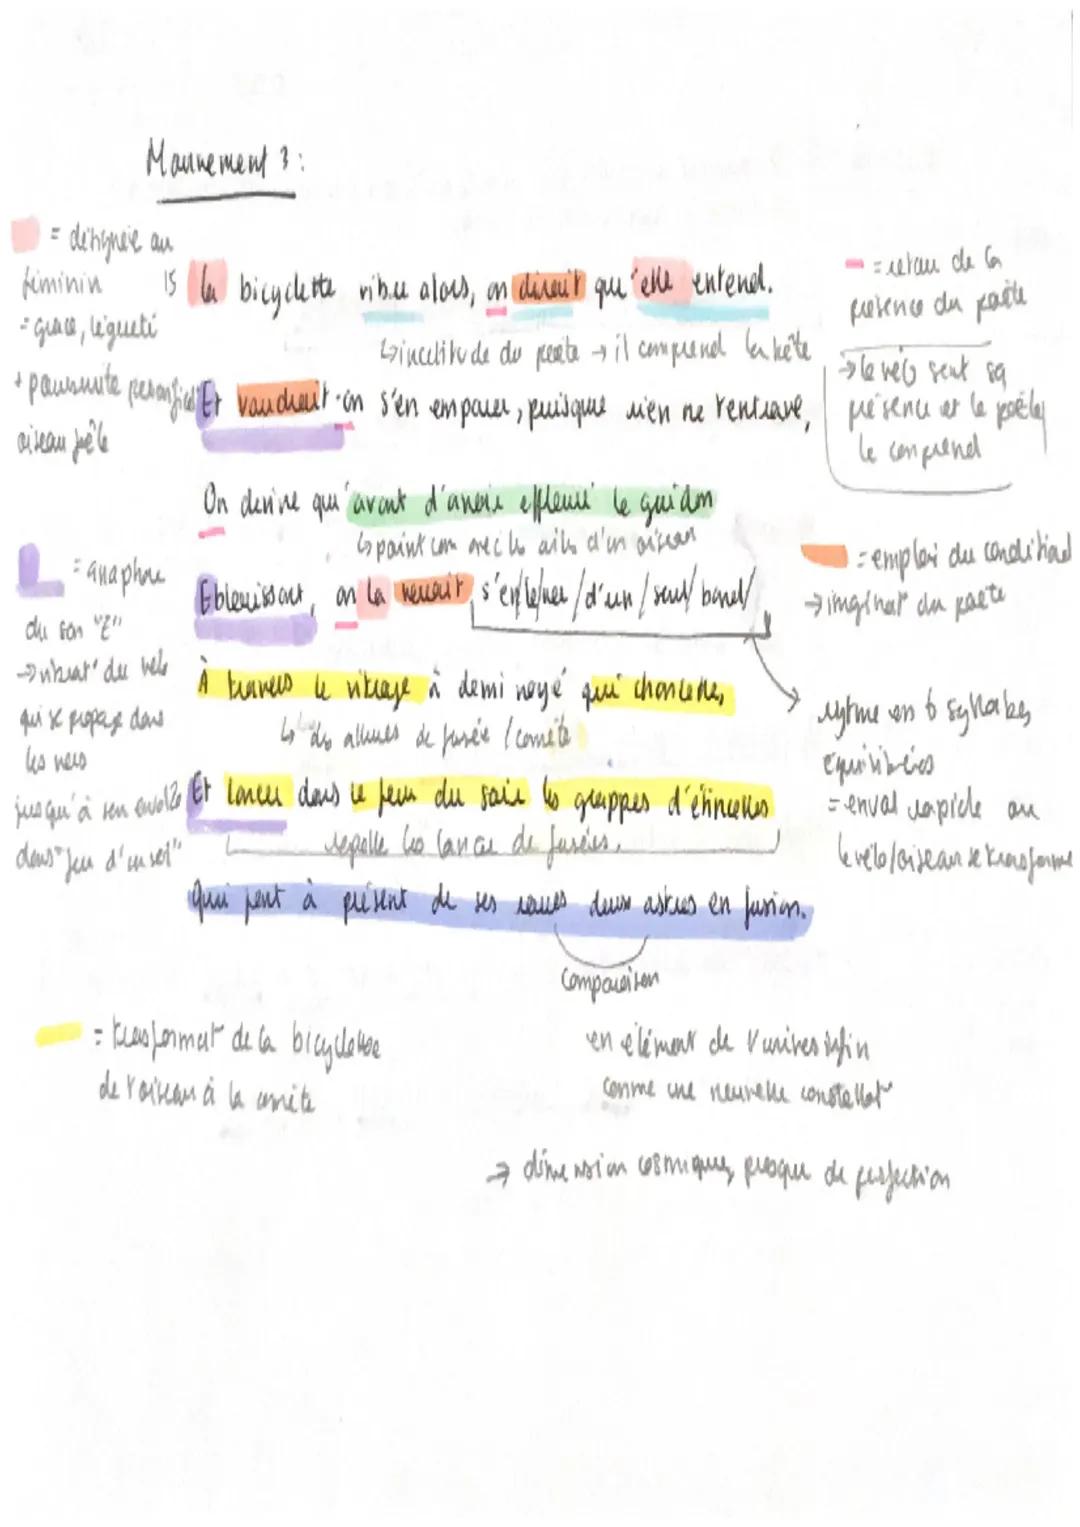 Mouvement 3 :
= désignée au
féminin
= grace, légèreté
+ poursuite personnifie
oiseau poête
15 la bicyclette vibre alors, on dirait qu'elle entend.
↳ incertitude du poete → il comprend la bête
= retour de la
présence du poète
→ le vélo sent sa
présence et le poète
le comprend
Et voudrait-on s'en emparer, puisque rien ne l'entrave,
On devine qu'avant d'avoir effleuré le guidon
↳ point com avec les ailes d'un oiseau
= anaphore
du son "E"
→ vibrat° du velo
qui se propage dans
les vers
jusqu'à son envol
dans "feu d'un soir"
Eblouissant, on la verrait s'en/le/ver /d'un/ seul/ bond/
= emploi du conditionel
→ imginat° du poete
À travers le vitrage à demi noyé qui chancelle,
↳ des allures de fusée / comète
rytme en 6 syllabes
équilibrées
= envol rapide ou
le vélo/oiseau se transforme
20 Et lancer dans le feu du soir les grappes d'étincelles
rapelle les lancer de fusées.
Qui sont à présent de ses roues deux astres en fusion.
Comparaison
= transformat° de la bicyclette
de l'oiseau à la comète
en élément de l'univers infin
comme une nouvelle constellat°
→ dimension cosmique, presque de perfection